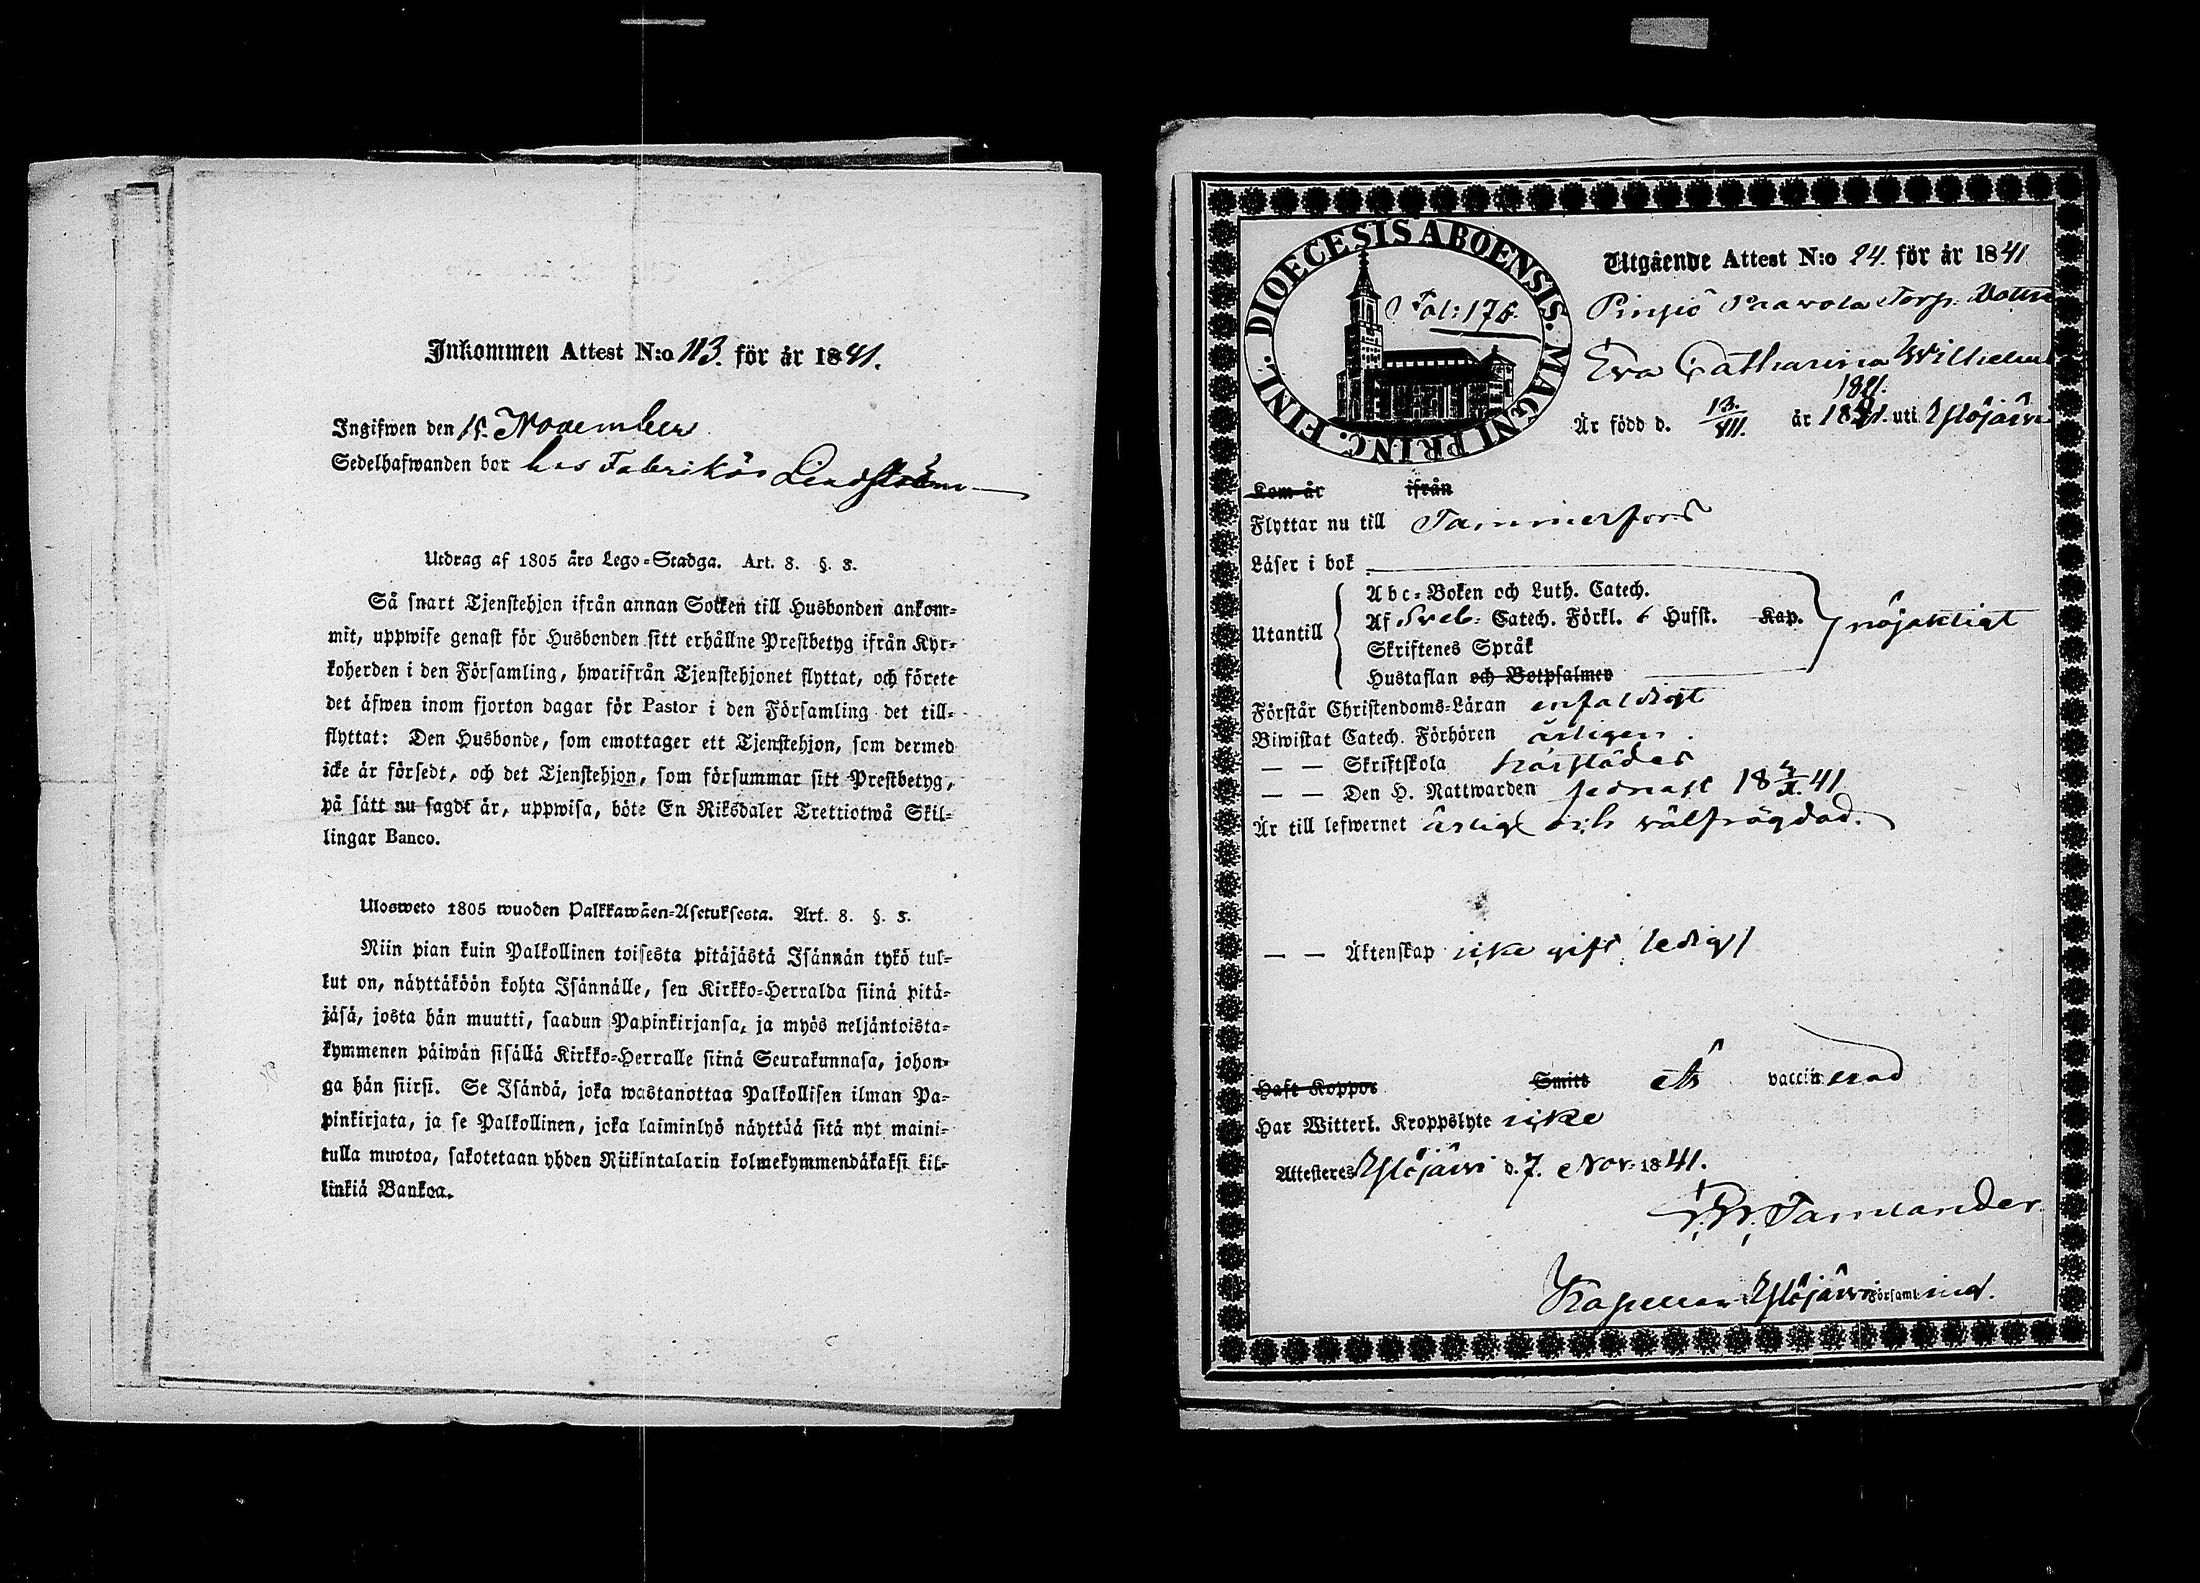 Inkommen Attest N:o 113. för år 1841.
Ingifwen den 15. November
Sedelhafwanden bor hos Fabrikör Lindström
Utdrag af 1805 års Lego-Stadga. Art. 8. §. 3.
Så snart Tjenstehjon ifrån annan Socken till Husbonden ankom-
mit, uppwise genast för Husbonden sitt erhållne Prestbetyg ifrån Kyr-
koherden i den Församling, hwarifrån Tjenstehjonet flyttat, och förete
det äfwen inom fjorton dagar för Pastor i den Församling det till-
flyttat: Den Husbonde, som emottager ett Tjenstehjon, som dermed
icke är försedt, och det Tjenstehjon, som försummar sitt Prestbetyg,
på sätt nu sagdt är, uppwisa, böte En Riksdaler Trettiotwå Skil-
lingar Banco.
Ulosweto 1805 wuoden Palkkawäen-Asetuksesta. Art. 8. §. 3.
Niin pian kuin Palkollinen toisesta pitäjästä Isännän tykö tul-
lut on, näyttäköön kohta Isännälle, sen Kirkko-Herralda siinä pitä-
jäsä, josta hän muutti, saadun Papinkirjansa, ja myös neljäntoista-
kymmenen päiwän sisällä Kirkko-Herralle siinä Seurakunnasa, johon-
ga hän siirsi. Se Isändä, joka wastanottaa Palkollisen ilman Pa-
pinkirjata, ja se Palkollinen, joka laiminlyö näyttää sitä nyt maini-
tulla muotoa, sakotetaan yhden Riikintalarin kolmekymmendäkaksi kil-
linkiä Bankoa.
DIOECESIS ABOENSIS. MAGNI PRINC. FINL.
Fol: 176.
Utgående Attest N:o 24. för år 1841
Pinsiö Paavola Torp. Dottr
Eva Catharina Wilhelm
1821.
Är född d. 13/VII. år 1821. uti Ylöjärvi
Kom år ifrån
Flyttar nu till Tammerfors
Läser i bok
Utantill
Abc-Boken och Luth. Catech.
Af Sveb: Catech. Förkl. 6 Hufst. Kap.
Skriftenes Språk
Hustaflan och Botpsalmer
nöjaktigt
Förstår Christendoms-Läran enfaldigt
Biwistat Catech. Förhören årligen.
— — Skriftskola härstädes
— — Den H. Nattwarden sednast 18 /X. 41
Är till lefwernet ärlig och välfrägdad.
— — Äktenskap icke gift, ledig
Haft Koppor Smitt Är vaccinerad
Har Witterl. Kroppslyte icke
Attesteres Ylöjärvi d. 7. Nov. 1841.
Tamlander
Kapellan i Ylöjärvi Församl.